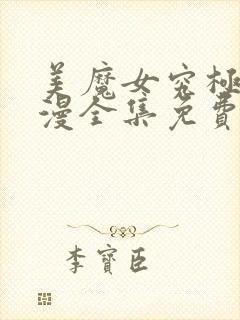 美魔女究极
漫全集免费
李寶臣